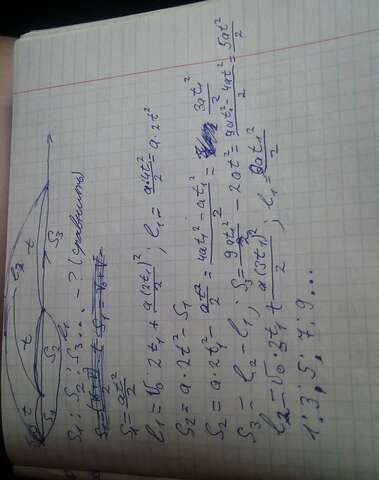 S₁ t S₂ t S₃ l₁ l₂
S₁ : S₂ : S₃ ... - ? (сравнить)
S₁ = at²/2
l₁ = v₀ · 2t₁ + a(2t₁)²/2 ; l₁ = a·4t²/2 = a·2t²
S₂ = a·2t² - S₁
S₂ = a·2t₁² - at²/2 = 4at₁² - at₁²/2 = 3at₁²/2
S₃ - l₂ - l₁ ; S₃ = 9at₁²/2 - 2at² = 9at₁² - 4at²/2 = 5at²/2
l₂ = v₀ · 3t₁ + a(3t₁)²/2 ; l₁ = 9at₁²/2
1 : 3 ; 5 ; 7 ; 9 ...